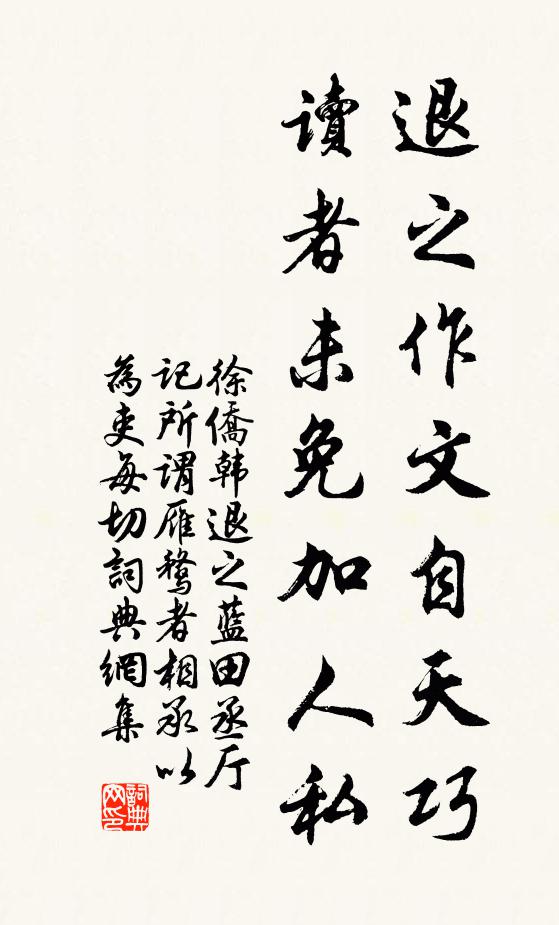 退之作文自天巧
讀者未免加人私
徐僑韩退之蓝田丞厅
记所谓雁鶩者相承以
為吏每切詞典網集
詞典
网印